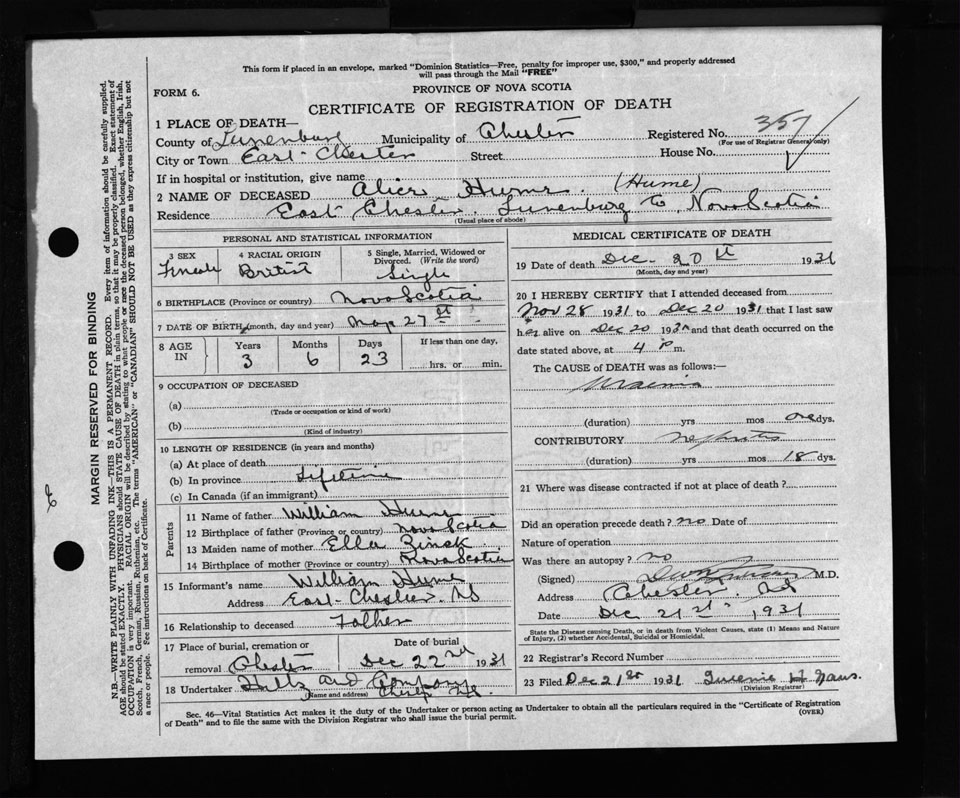 This form if placed in an envelope, marked "Dominion Statistics—Free, penalty for improper use, $300," and properly addressed
will pass through the Mail "FREE"
FORM 6.
PROVINCE OF NOVA SCOTIA
CERTIFICATE OF REGISTRATION OF DEATH
1 PLACE OF DEATH—
County of Lunenburg Municipality of Chester Registered No. 357
(For use of Registrar General only)
City or Town East Chester Street House No.
If in hospital or institution, give name
2 NAME OF DECEASED Alice Hume. (Hume)
Residence East Chester. Lunenburg Co, Nova Scotia
(Usual place of abode)
PERSONAL AND STATISTICAL INFORMATION
3 SEX
Female
4 RACIAL ORIGIN
British
5 Single, Married, Widowed or
Divorced. (Write the word)
Single
6 BIRTHPLACE (Province or country) Nova Scotia
7 DATE OF BIRTH (month, day and year) 27st ?
8 AGE IN
Years 3
Months 6
Days 23
If less than one day,
hrs. or min.
9 OCCUPATION OF DECEASED
(a)
(Trade or occupation or kind of work)
(b)
(Kind of industry)
10 LENGTH OF RESIDENCE (in years and months)
(a) At place of death
(b) In province Lifetime
(c) In Canada (if an immigrant)
Parents
11 Name of father William Hume
12 Birthplace of father (Province or country) Nova Scotia
13 Maiden name of mother Ella Zinck
14 Birthplace of mother (Province or country) Nova Scotia
15 Informant's name William Hume
Address East Chester. NS
16 Relationship to deceased Father
17 Place of burial, cremation or
removal Chester
Date of burial
Dec 22nd 1931
18 Undertaker Hilts and Company
(Name and address) NS
MEDICAL CERTIFICATE OF DEATH
19 Date of death Dec. 20th 1931
(Month, day and year)
20 I HEREBY CERTIFY that I attended deceased from
Nov 28 1931 to Dec 20 1931 that I last saw
her alive on Dec 20 193 and that death occurred on the
date stated above, at 4 p m.
The CAUSE of DEATH was as follows:—
Uraemia
(duration) yrs mos one dys.
CONTRIBUTORY Nephritis
(duration) yrs mos 18 dys.
21 Where was disease contracted if not at place of death?
Did an operation precede death? no Date of
Nature of operation
Was there an autopsy? no
(Signed) M.D.
Address Chester, NS
Date Dec 21st 1931
State the Disease causing Death, or in death from Violent Causes, state (1) Means and Nature
of Injury, (2) whether Accidental, Suicidal or Homicidal.
22 Registrar's Record Number
23 Filed Dec 21st 1931 H
(Division Registrar)
Sec. 46—Vital Statistics Act makes it the duty of the Undertaker or person acting as Undertaker to obtain all the particulars required in the "Certificate of Registration
of Death" and to file the same with the Division Registrar who shall issue the burial permit.
(OVER)
MARGIN RESERVED FOR BINDING
N.B.—WRITE PLAINLY WITH UNFADING INK—THIS IS A PERMANENT RECORD. Every item of information should be carefully supplied.
AGE should be stated EXACTLY. PHYSICIANS should STATE CAUSE OF DEATH in plain terms, so that it may be properly classified. Exact statement of
OCCUPATION is very important. RACIAL ORIGIN will be described by stating to what people or race the deceased person belonged, whether English, Irish,
Scotch, French, German, Russian, Ruthenian, etc. The terms "AMERICAN" or "CANADIAN" SHOULD NOT BE USED as they express citizenship but not
a race or people. See instructions on back of Certificate.